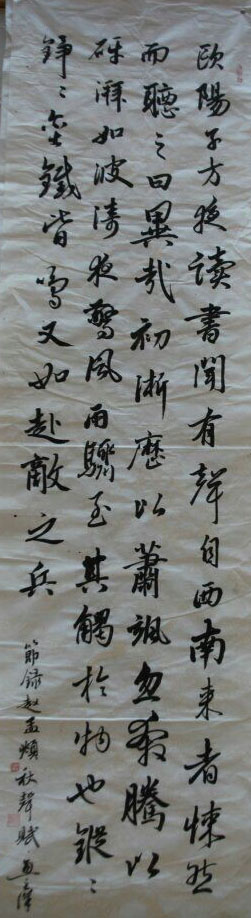 歐陽子方夜讀書聞有聲自西南來者悚然
而聽之曰異哉初淅瀝以蕭颯忽奔騰以
砰湃如波濤夜驚風雨驟至其觸於物也鏦〻
錚〻金鐵皆鳴又如赴敵之兵
節錄趙孟頫秋聲賦